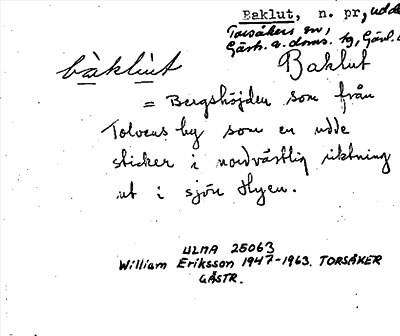 Baklut, n. pr, udde
Torsåkers sn,
Gästr. a. doms. tg, Gävl.
bàklùt Baklut
= Bergshöjden som från
Tolvens by som en udde
sticker i nordvästlig riktning
ut i sjön Hyen.
ULMA 25063
William Eriksson 1947-1963. TORSÅKER
GÄSTR.